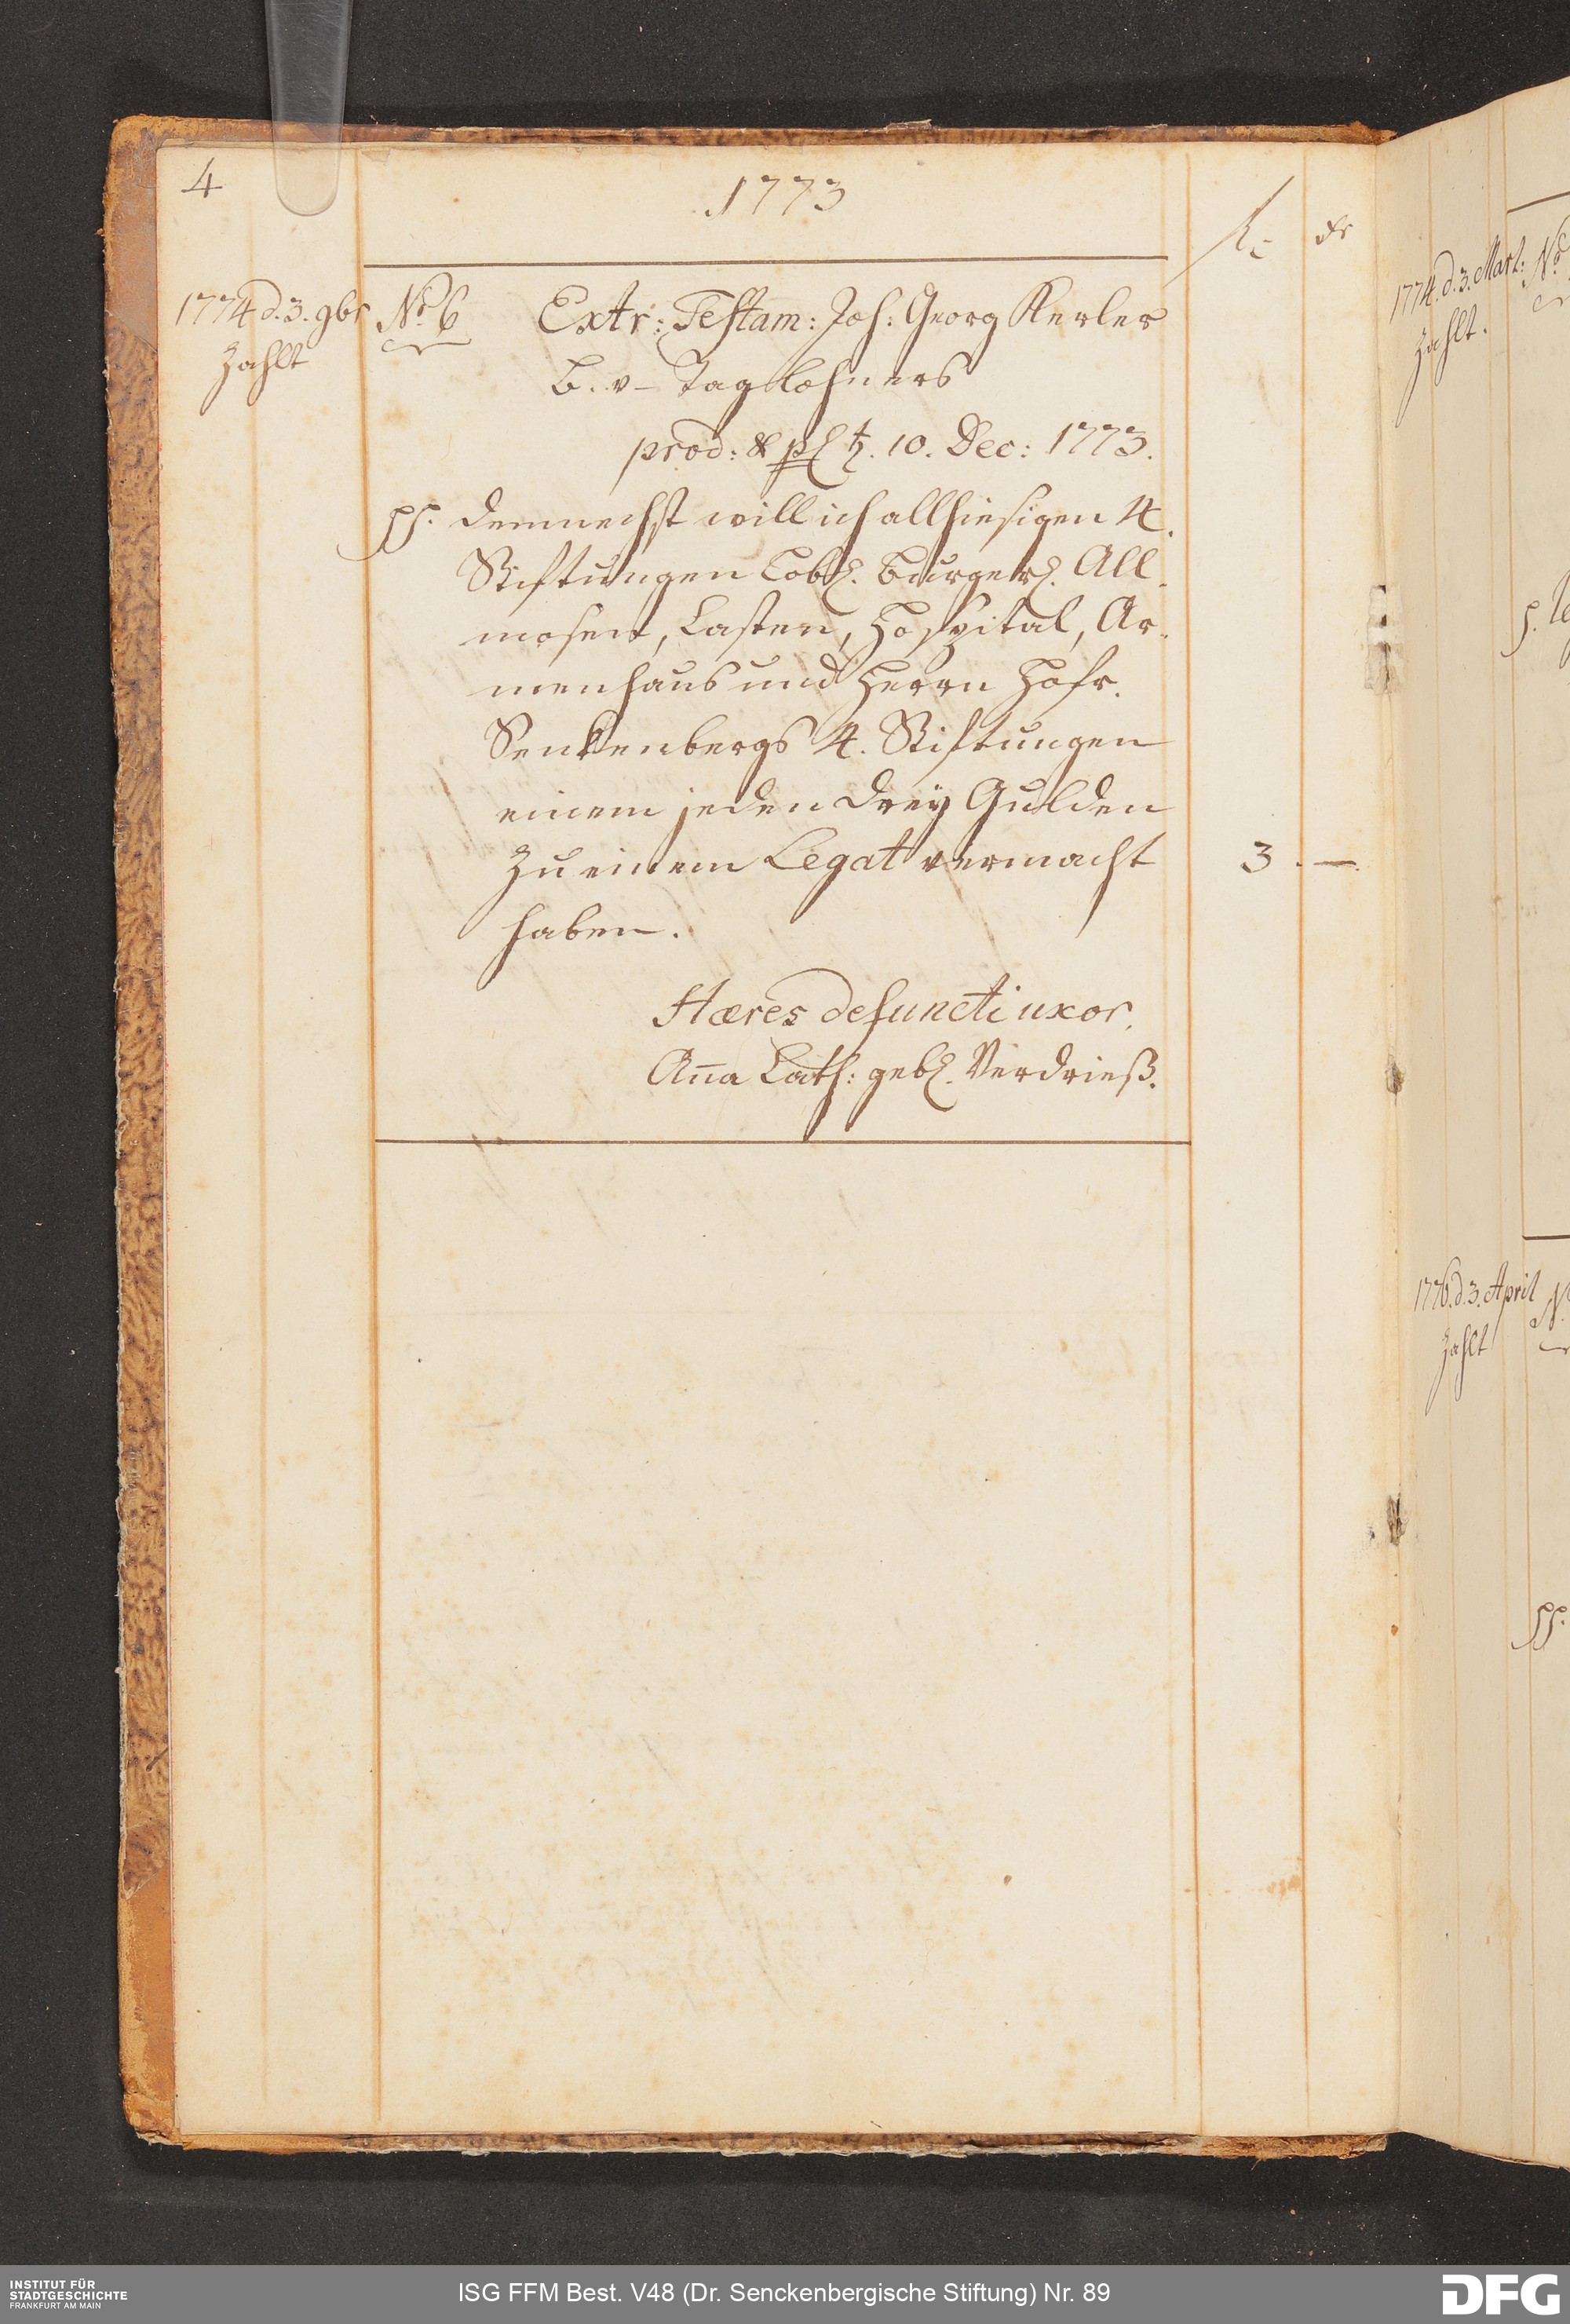 4
1773
fl: xr
1774 d. 3. 9br
Zahlt
No. 6 Extr: Testam: Joh: Georg Kerler
B. v- Taglöhners
prod: & pl ♄. 10. Dec: 1773.
pp. demnechst will ich allhiesigen 4.
Stiftungen Löbl. Burgerl. All-
mosen, Casten, Hospital, Ar-
menhaus und Herrn Hofr.
Senkenbergs 4. Stiftungen
einem jeden drey Gulden
zu einem Legat vermacht 3. —.
haben.
Hæres defuncti uxor.
Aña Cath: gebl. Verdrieß.
1774. d. 3. Mart: No
Zahlt.
p.
1776. d. 3. April N
Zahlt
pp.
INSTITUT FÜR
STADTGESCHICHTE
FRANKFURT AM MAIN
ISG FFM Best. V48 (Dr. Senckenbergische Stiftung) Nr. 89
DFG